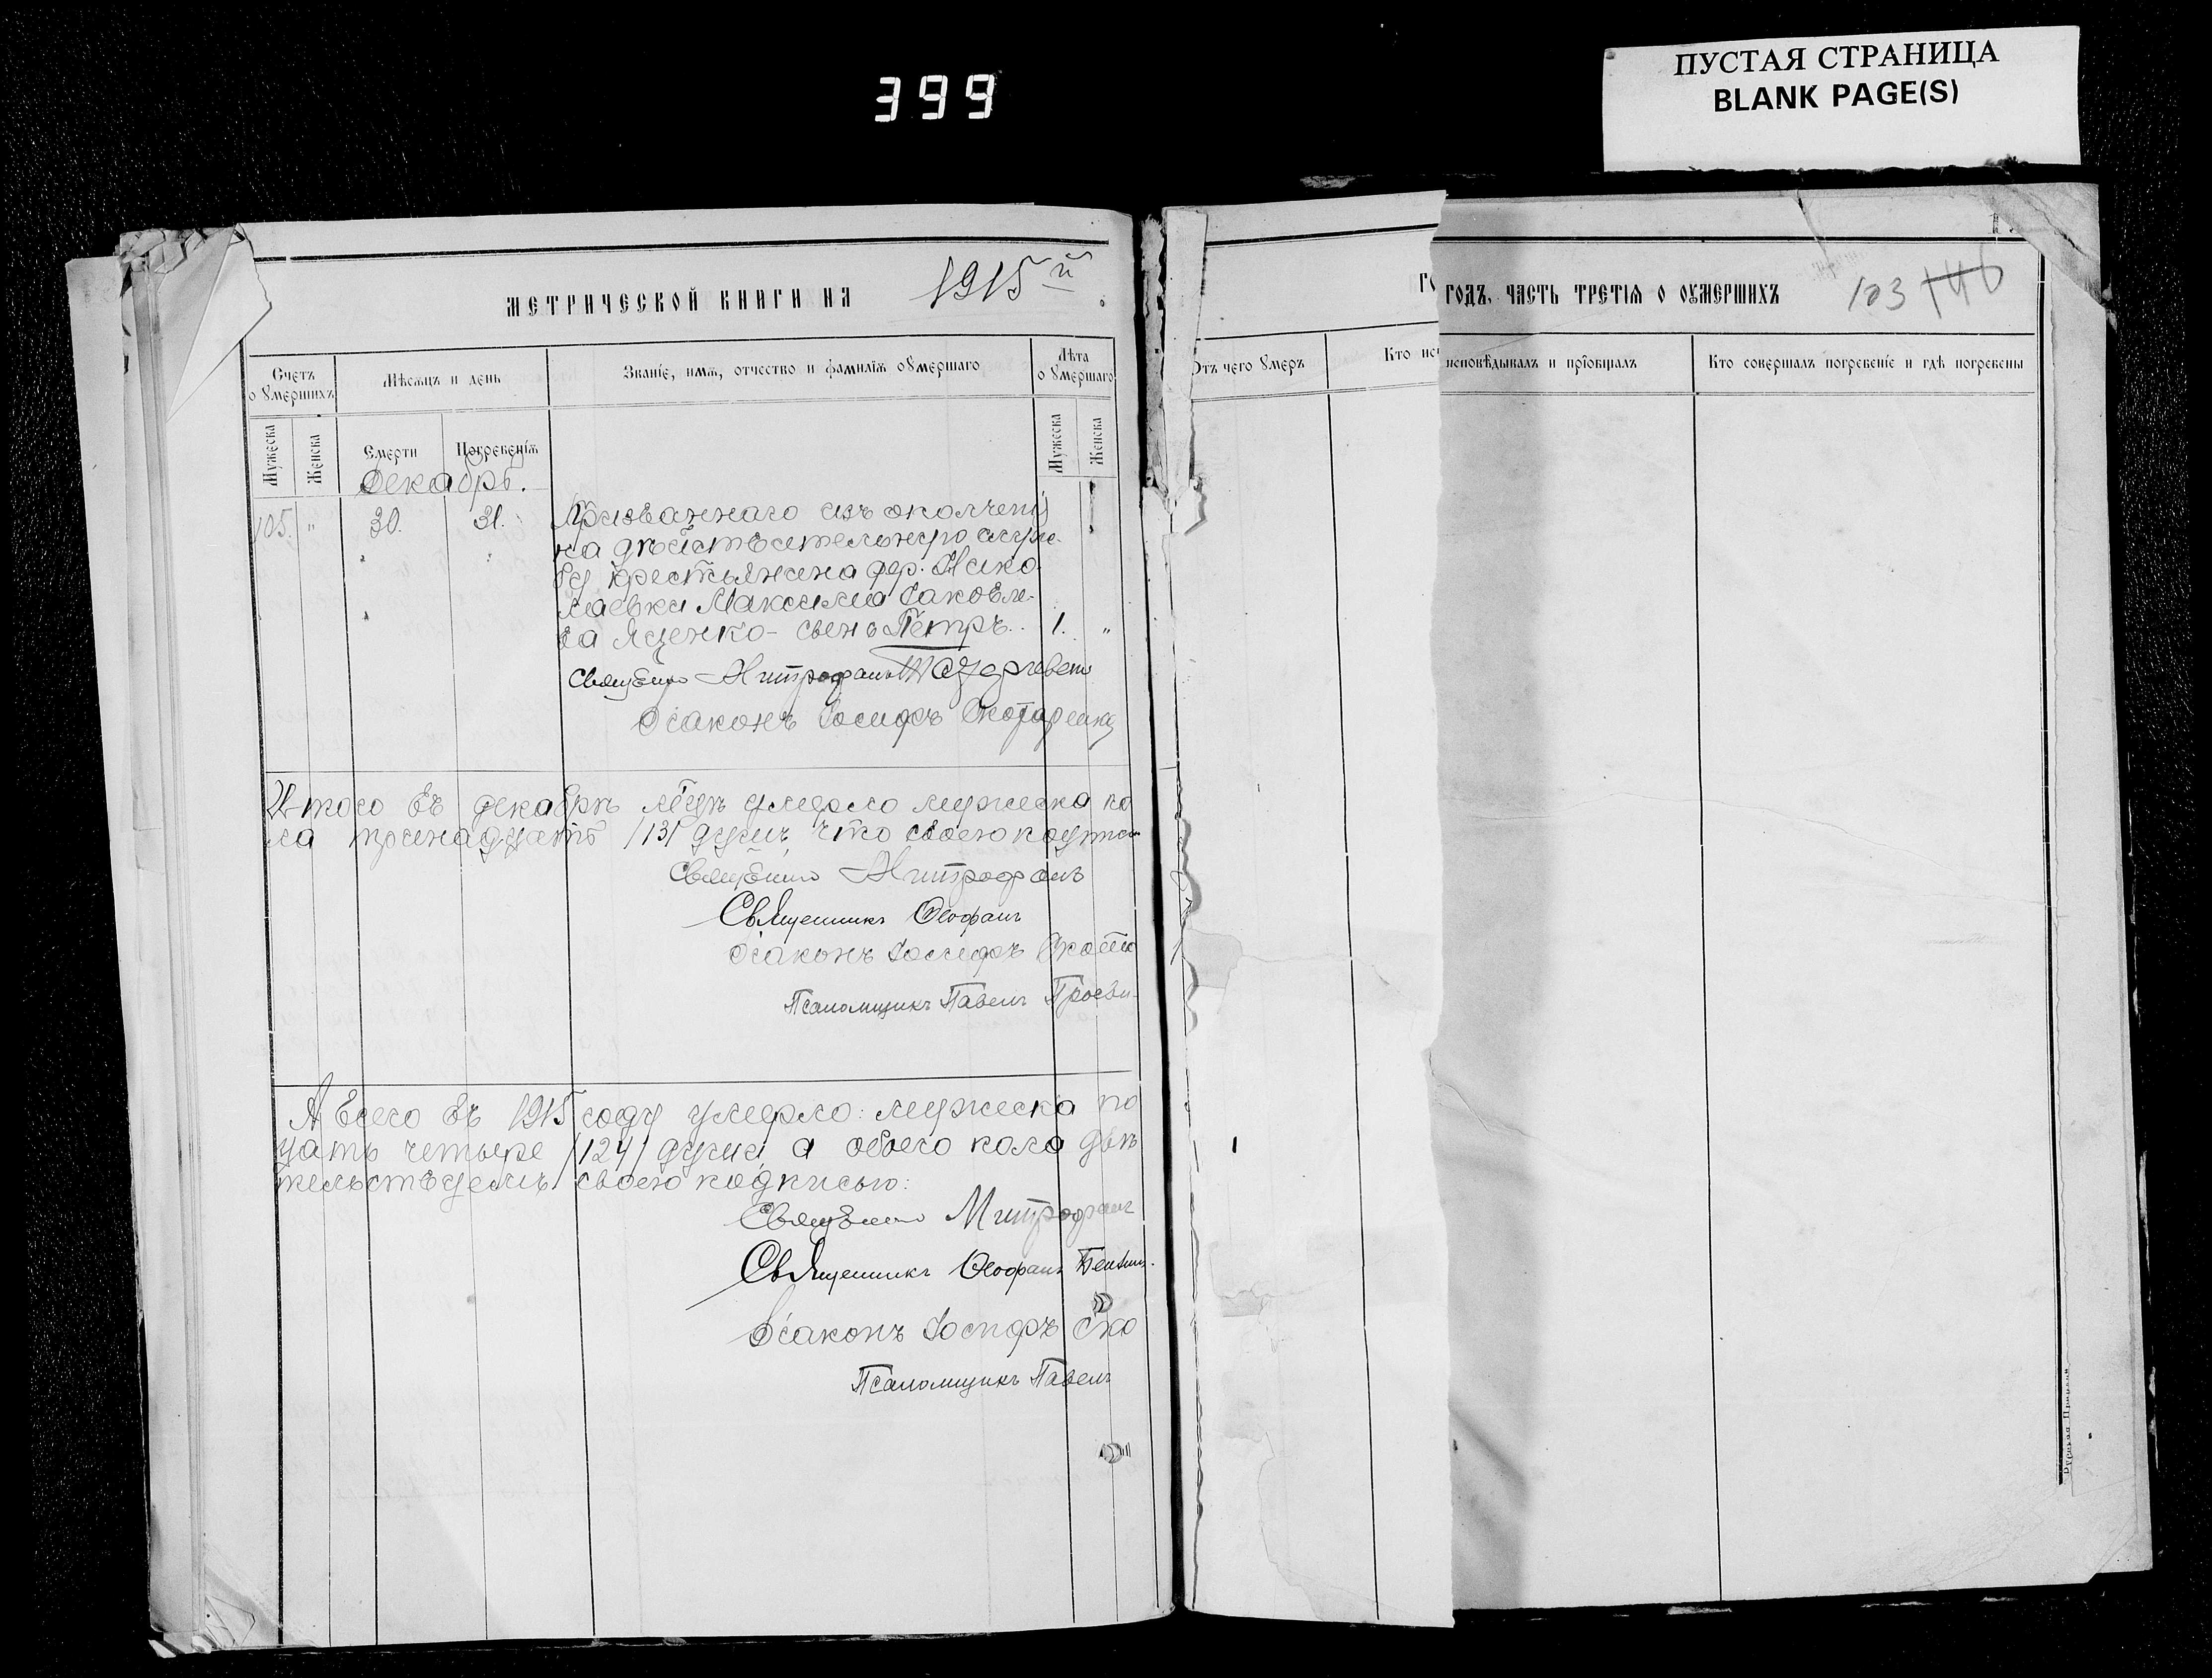 399
ПУСТАЯ СТРАНИЦА
BLANK PAGE(S)
МЕТРИЧЕСКОЙ КНИГИ НА 1915 й
ГОДЪ, ЧАСТЬ ТРЕТІЯ О ОУМЕРШИХЪ
103 146
Счетъ о умершихъ
Мѣсяцъ и день
Званіе, имя, отчество и фамилія оумершаго
Лѣта оумершаго
Мужеска
Женска
Смерти
Погребенія
Мужеска
Женска
Отъ чего умеръ
Кто исп
исповѣдывалъ и пріобщалъ
Кто совершалъ погребеніе и гдѣ погребены
Декабрь.
105. " 30. 31. Призваннаго изъ ополченія
на дѣйствительную служ-
бу крестьянина дер. Нико
лаевки Максима Іаковле-
ва Яценко - сынъ Петръ. 1. "
Священно Митрофанъ
Діаконъ Іосифъ
Итого въ декабрѣ м-цѣ умерло мужеска по
ла тринадцать /13/ душъ, что своею подписа
Священно Митрофанъ
Священникъ Ѳеофанъ
Діаконъ Іосифъ
Псаломщикъ Павелъ
А всего въ 1915 году умерло: мужеска по
цать четыре /124/ души, а обоего пола двѣ
тельствуемъ своею подписью:
Священно Митрофанъ
Священникъ Ѳеофанъ
Діаконъ Іосифъ Ско
Псаломщикъ Павелъ